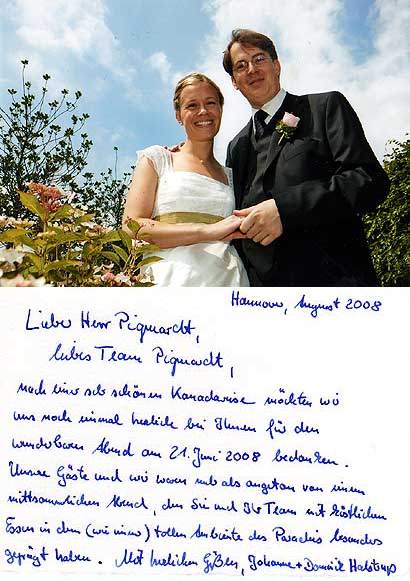 Hannover, August 2008
Lieber Herr Piquardt,
liebes Team Piquardt,
nach einer sehr schönen Kanadareise möchten wir
uns noch einmal herzlich bei Ihnen für den
wunderbaren Abend am 21. Juni 2008 bedanken.
Unsere Gäste und wir waren mehr als angetan von einem
mittsommerlichen Abend, den Sie und Ihr Team mit köstlichem
Essen in dem (wie immer) tollen Ambiente des Paradies besonders
geprägt haben. Mit herzlichen Grüßen, Johanne + Dominik